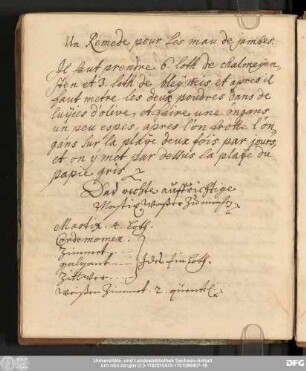 Un Remede pour Les mau de jambes.
Il faut prendre 6 loth de chalmeyen
stein et 3. loth de bleyweis et apres il
faut metre les deux poudres dans de
luÿles d'olive, et faire une ongans
un peu espes, apres l'on frotte l'on
gans sur la playe deux fois par jours,
et on y met par dessus la playe du
papie gris
Das rechte auffrichtige
Mastix Waßer Zumachen
Mastix 4. Loth.
Cardemomen
Zimmet
galgant jedes ein Loth.
Zittwer
Weißen Zimmet. 2. quentl
Universitäts- und Landesbibliothek Sachsen-Anhalt
DFG